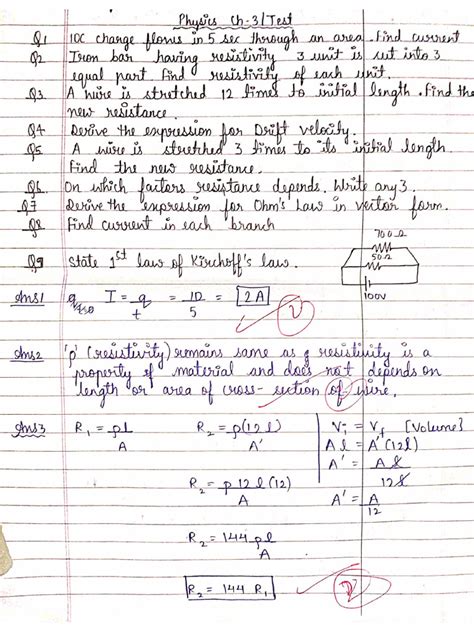 Physics Ch-3/Test
Q1 10C charge flows in 5 sec through an area. Find current
Q2 Iron bar having resistivity 3 unit is cut into 3
equal part find resistivity of each unit.
Q3 A wire is stretched 12 times to initial length. Find the
new resistance.
Q4 Derive the expression for Drift velocity.
Q5 A wire is stretched 3 times to its initial length.
Find the new resistance.
Q6 On which factors resistance depends. Write any 3.
Q7 Derive the expression for Ohm's Law in vector form.
Q8 Find current in each branch
700Ω
50Ω
100V
Q9 State 1st law of Kirchoff's law.
Ans1 I = q/t = 10/5 = 2A
Ans2 'ρ' (resistivity) remains same as resistivity is a
property of material and does not depends on
length or area of cross-section of wire.
Ans3 R₁ = ρl/A R₂ = ρ(12l)/A' Vi = Vf [Volume]
Al = A'(12l)
R₂ = ρ12l(12)/A A' = Al/12l
A' = A/12
R₂ = 144ρl/A
R₂ = 144 R₁